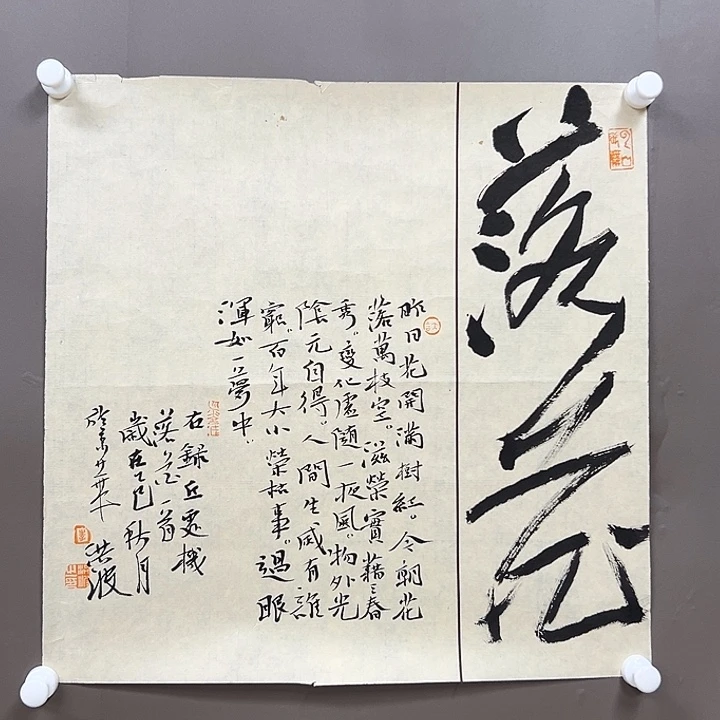 落花
昨日花開滿樹紅。今朝花
落萬枝空。滋榮實藉三春
秀。變化虛隨一夜風。物外光
陰元自得。人間生滅有誰
窮。百年大小榮枯事。過眼
渾如一夢中。
右録丘處機
落花一首
歲在乙巳秋月
洪波